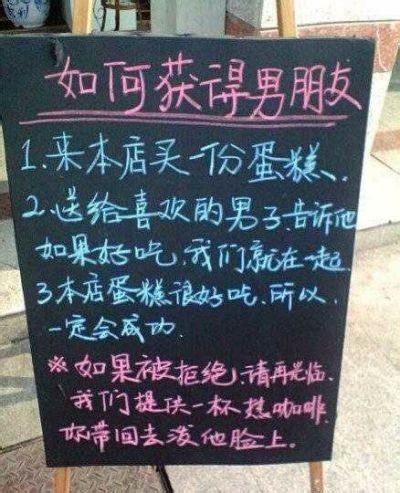 如何获得男朋友
1.来本店买一份蛋糕、
2.送给喜欢的男子、告诉他
如果好吃、我们就在一起、
3本店蛋糕很好吃、所以、
一定会成功.
※如果被拒绝、请再光临、
我们提供一杯热咖啡
你带回去泼他脸上。